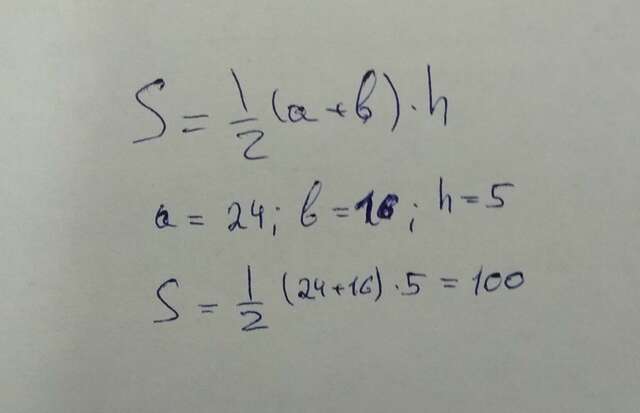 S = 1/2 (a + b) · h
a = 24; b = 16; h = 5
S = 1/2 (24+16) · 5 = 100